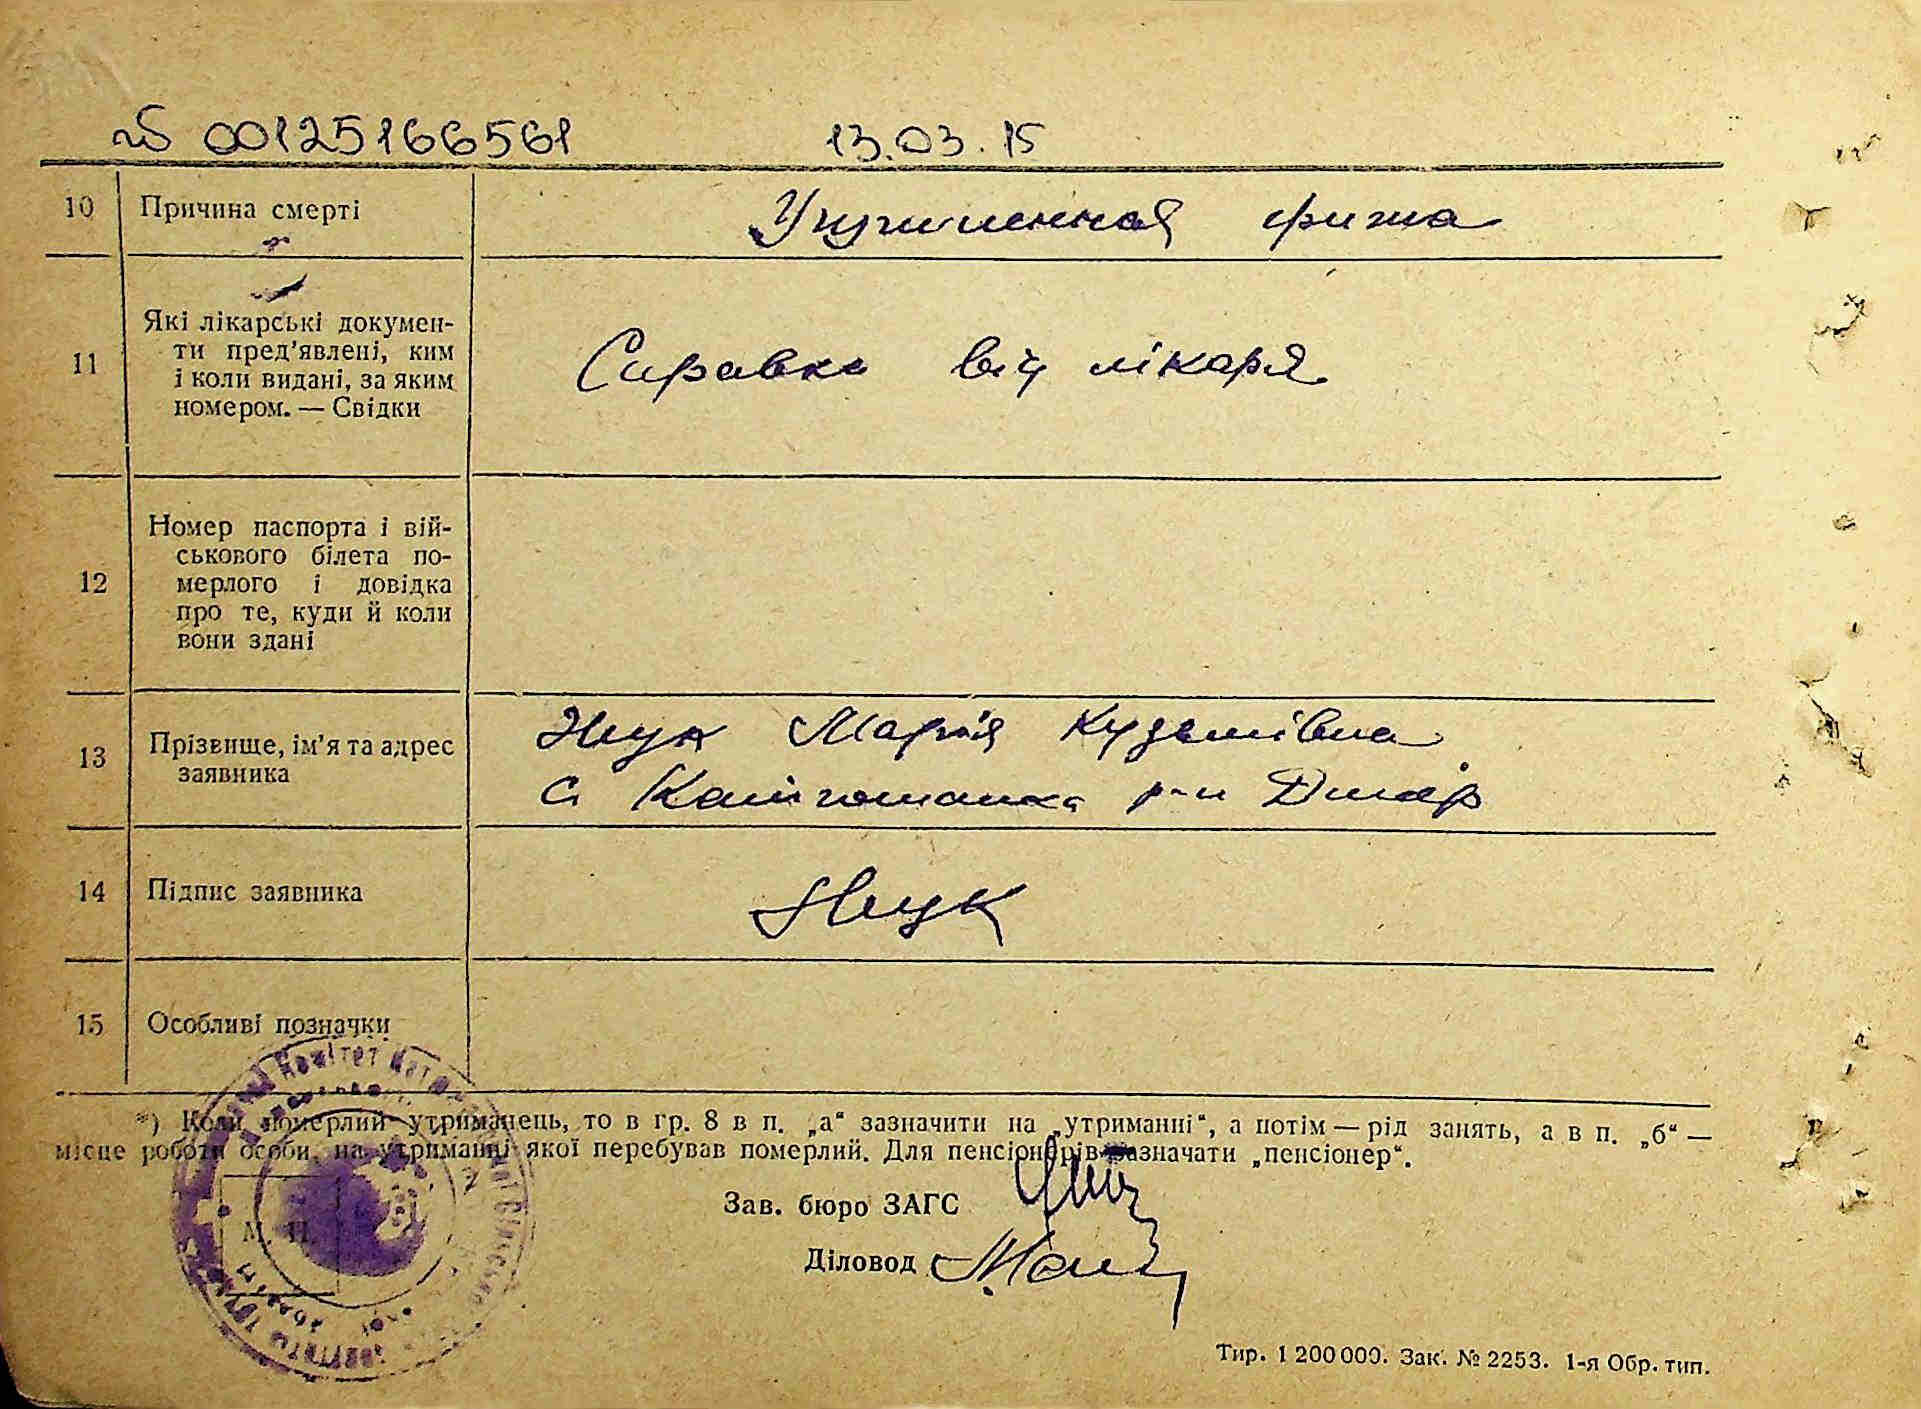 № 00125166561 13.03.15
10 Причина смерті
11 Які лікарські докумен-
ти пред'явлені, ким
і коли видані, за яким
номером. — Свідки
Справка від лікаря
12 Номер паспорта і вій-
ськового білета по-
мерлого і довідка
про те, куди й коли
вони здані
13 Прізвище, ім'я та адрес
заявника
Марія Кузьмівна
с. р-н Димер
14 Підпис заявника
15 Особливі позначки
*) Коли померлий утриманець, то в гр. 8 в п. „а“ зазначити на „утриманні“, а потім — рід занять, а в п. „б“ —
місце роботи особи, на утриманні якої перебував померлий. Для пенсіонерів зазначати „пенсіонер“.
Зав. бюро ЗАГС
М. П.
Діловод
Тир. 1 200 000. Зак. № 2253. 1-я Обр. тип.